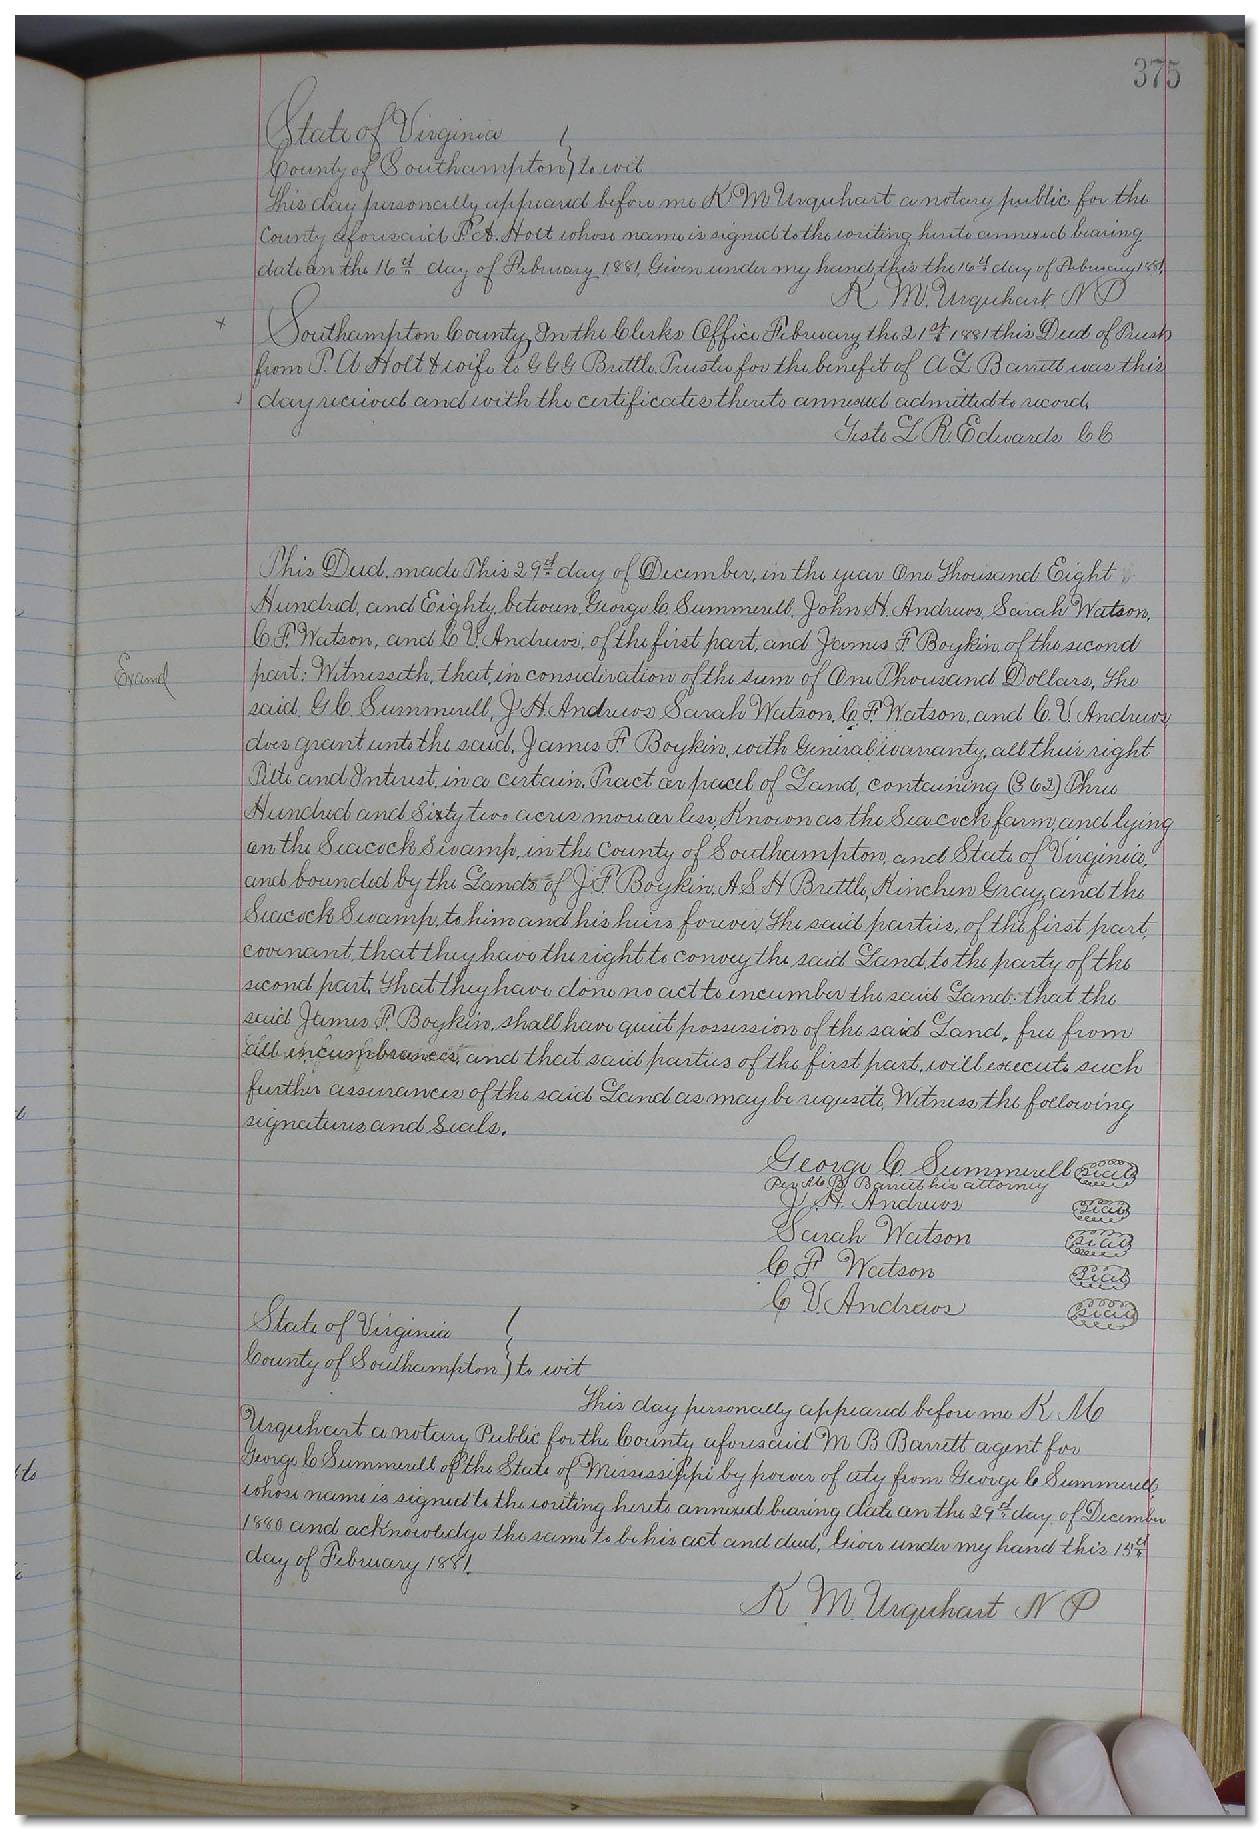 375
State of Virginia
County of Southampton } to wit
This day personally appeared before me K M Urquhart a notary public for the
County aforesaid P. A. Holt whose name is signed to the writing hereto annexed bearing
date on the 16th day of February 1881, Given under my hand this the 16th day of February 1881.
K M. Urquhart N P
Southampton County, In the Clerks Office February the 21st 1881 this Deed of Trust
from P. A Holt & wife to G G G Brittle Trustee for the benefit of A L Barrett was this
day received and with the certificates thereto annexed admitted to record,
Teste L R Edwards C C
This Deed, made This 29th day of December, in the year One Thousand Eight
Hundred, and Eighty, between, George C. Summerell, John H. Andrews, Sarah Watson,
C. F. Watson, and C. V. Andrews, of the first part, and James F Boykin, of the second
Examd
part: Witnesseth, that, in consideration of the sum of One Thousand Dollars, the
said, G C. Summerell, J H Andrews Sarah Watson, C. F Watson, and C. V. Andrews
does grant unto the said, James F Boykin, with General warranty, all their right
Title and Interest, in a certain, Tract or parcel of Land, containing (362) Three
Hundred and Sixty two acres more or less, Known as the Seacock farm, and lying
on the Seacock Swamp, in the County of Southampton, and State of Virginia,
and bounded by the Lands of J. F Boykin, A. S. H Brittle, Kinchen Gray, and the
Seacock Swamp, to him and his heirs forever, The said parties, of the first part,
covenant, that they have the right to convey the said Land, to the party of the
second part, That they have done no act to incumber the said Land: that the
said James F. Boykin, shall have quiet possession of the said Land, free from
all incumbrances, and that said parties of the first part, will execute such
further assurances of the said Land as may be requisite, Witness the following
signatures and Seals.
George C. Summerell seal
Per M B Barrett his attorney
J H. Andrews seal
Sarah Watson seal
C F Watson seal
C V. Andrews seal
State of Virginia
County of Southampton } to wit
This day personally appeared before me K M
Urquhart a notary Public for the County aforesaid M B Barrett agent for
George C Summerell of the State of Mississippi by power of aty from George C Summerell
whose name is signed to the writing hereto annexed bearing date on the 29th day of December
1880 and acknowledge the same to be his act and deed, Given under my hand this 15th
day of February 1881.
K M Urquhart N P